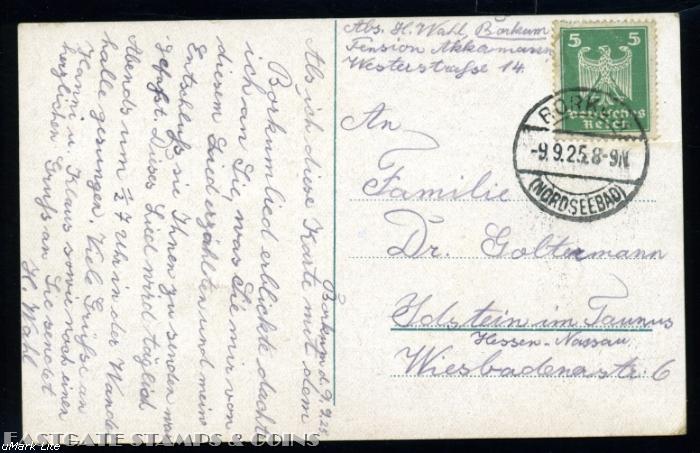 Abs. H. Wahl, Borkum
Pension Akkamann
Westerstraße 14.
5 5
Deutsches
Reich
BORKUM
-9.9.25.8-9N.
(NORDSEEBAD)
An
Familie
Dr. Goltermann
Idstein im Taunus
Hessen-Nassau
Wiesbadenerstr. 6
Borkum, d. 9.9.25.
Als ich diese Karte mit dem
Borkumlied erblickte dachte
ich an Sie, was Sie mir von
diesem Lied erzählten und mein
Entschluß sie Ihnen zu senden war
gefaßt. Dieses Lied wird täglich
Abends um ½ 7 Uhr in der Wandel
halle gesungen. Viele Grüße an
Hanni u. Klaus sowie noch einen
herzlichen Gruß an Sie sendet
H. Wahl
EASTGATE STAMPS & COINS
uMark Lite